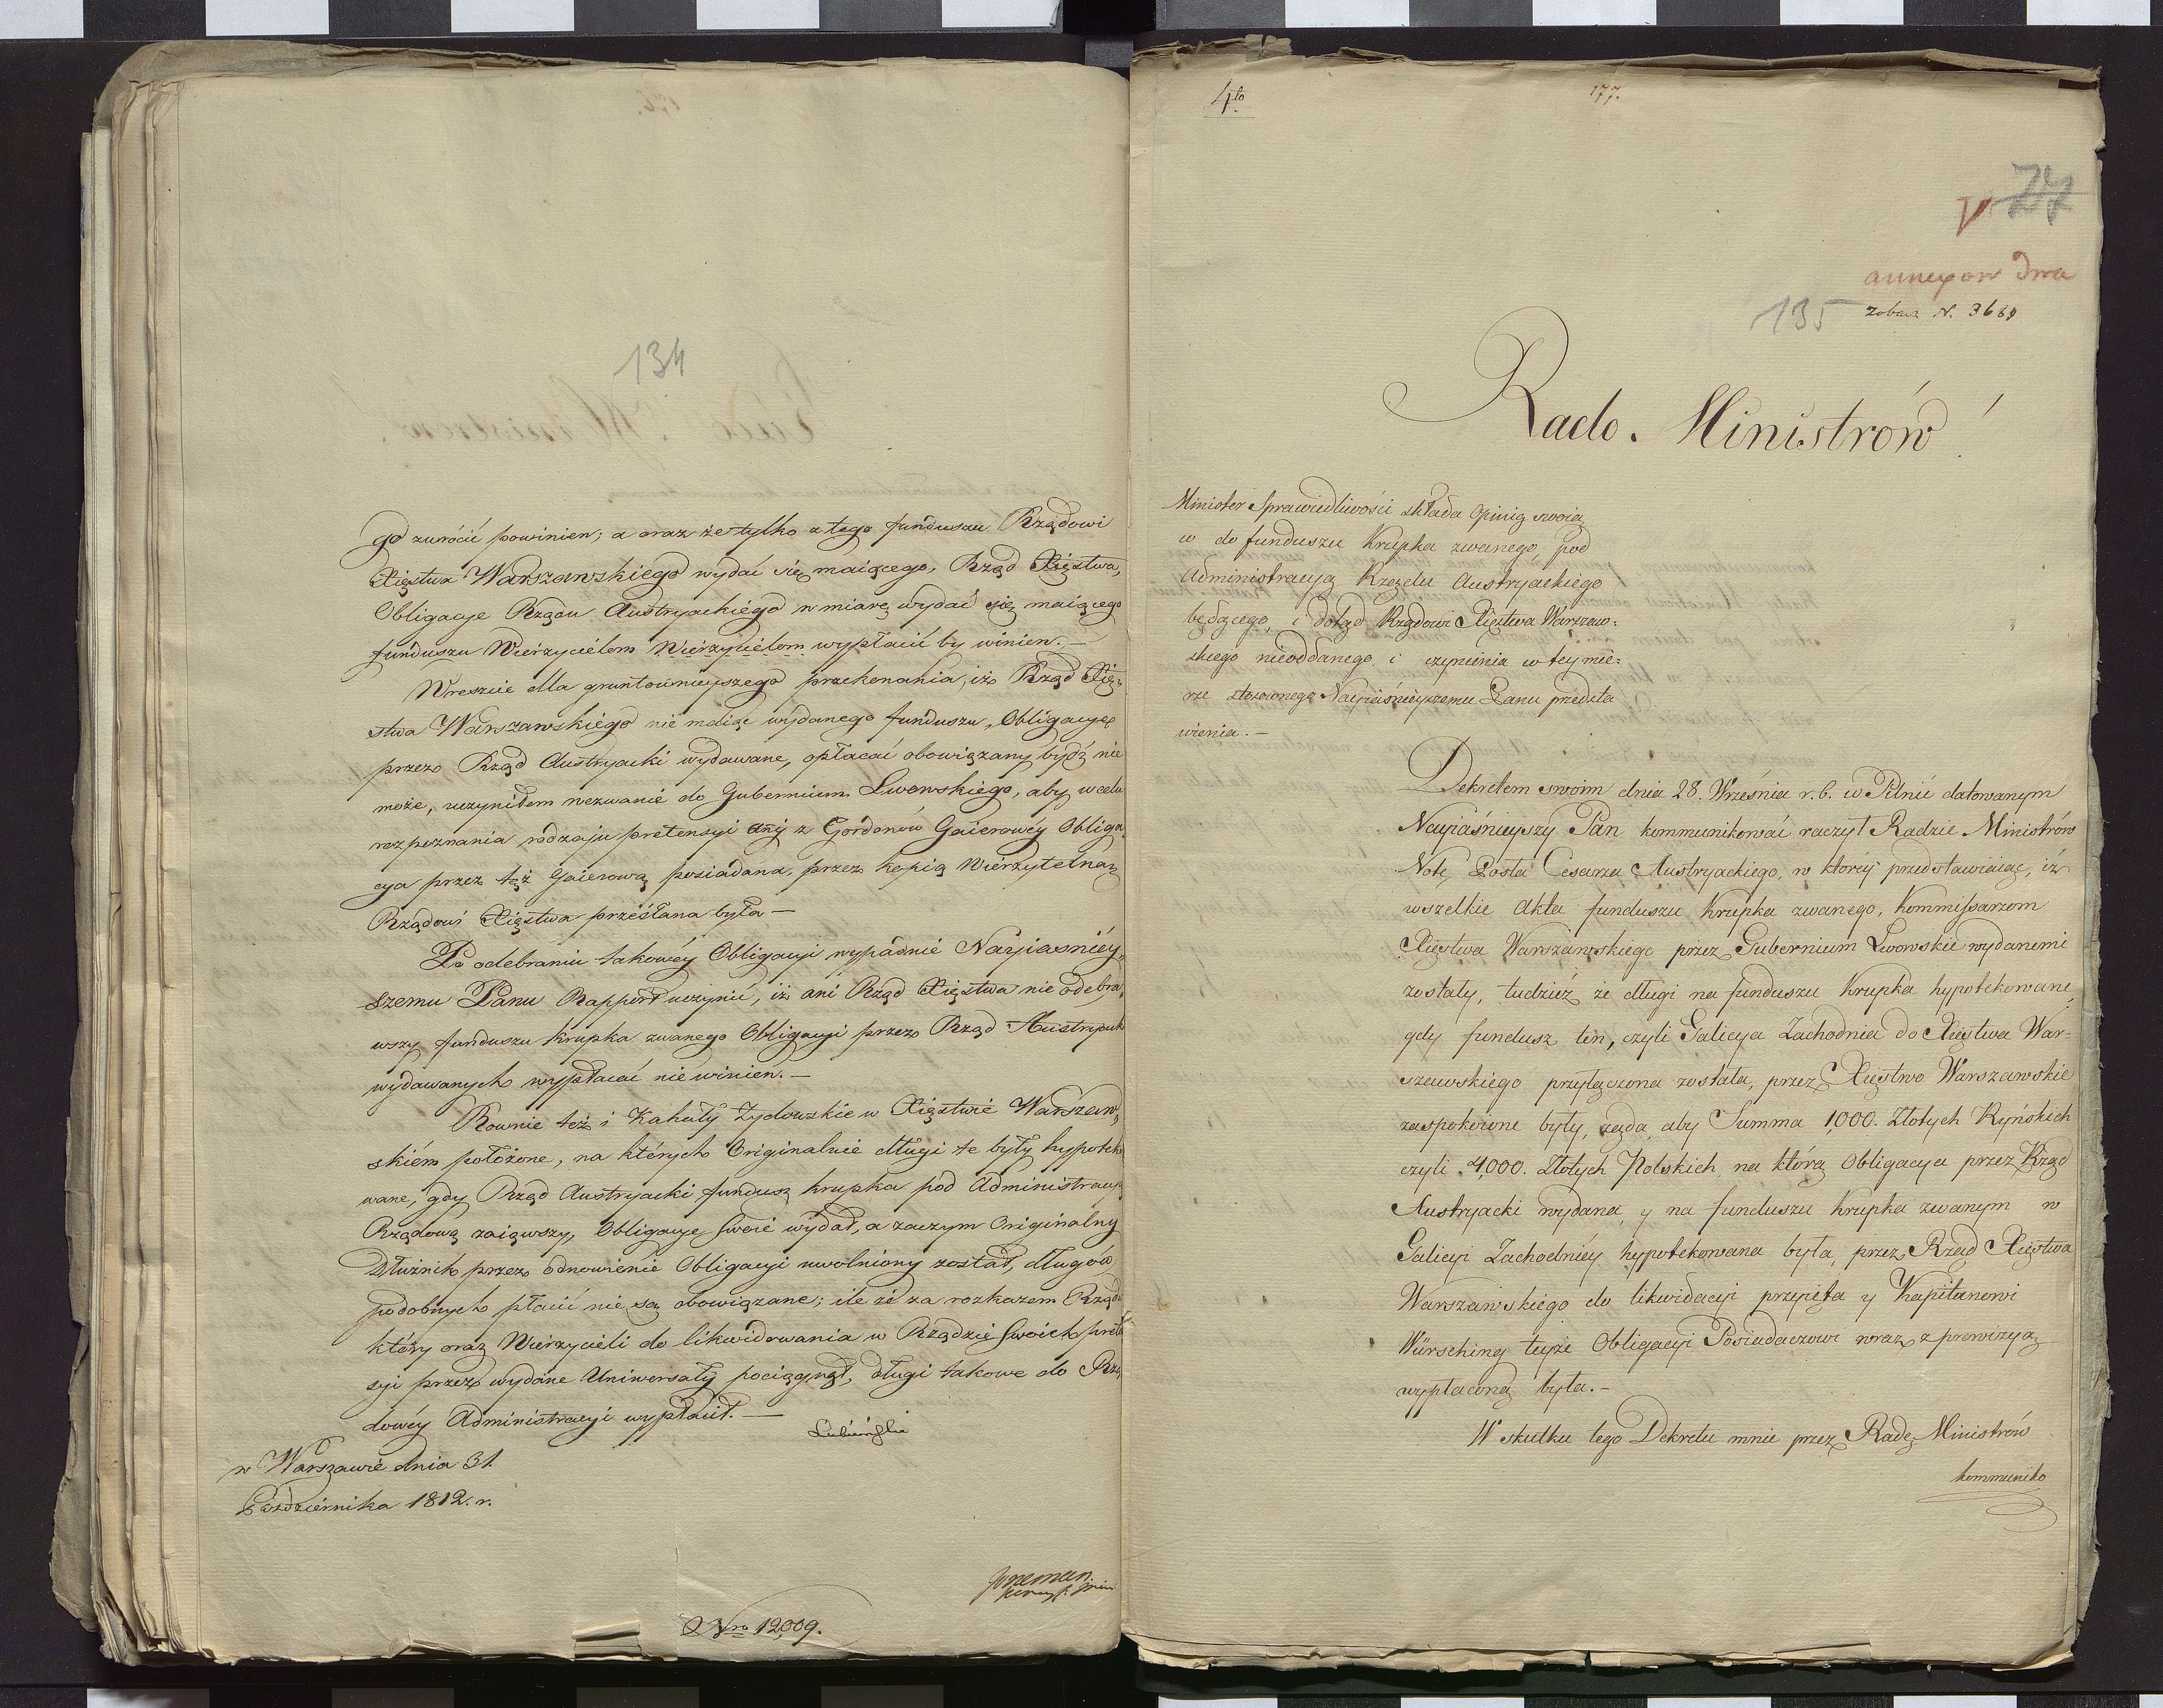 134
go zwrócić powinien; a oraz że tylko z tego funduszu Rządowi
Xięstwa Warszawskiego wydać się maiącego, Rząd Xięstwa,
Obligacye Rządu Austryackiego w miarę wydać się maiącego
funduszu Wierzycielom Wierzycielom wypłacić by winien.—
Wreszcie dla gruntownieyszego przekonania, iż Rząd Xię-
stwa Warszawskiego nie maiąc wydanego funduszu, Obligacye
przez Rząd Austryacki wydawane, opłacać obowiązany bydź nie
może, uczyniłem wezwanie do Gubernium Lwowskiego, aby w celu
rozpoznania rodzaju pretensyi Anny z Gordonów Gaierowéy Obliga
cya przez też Gaierową posiadana, przez kopią Wierzytelną
Rządowi Xięstwa przesłana była—
Po odebraniu takowéy Obligacyi wypadnie Nayiaśniéy
szemu Panu Rapport uczynić, iż ani Rząd Xięstwa nie odebra
wszy funduszu krupka zwanego Obligacyi przez Rząd Austryack
wydawanych wypłacać niewinien.—
Rownie też i Kahały Żydowskie w Xięstwie Warszaw
skiém położone, na których Originalnie długi te były hypoteko
wane, gdy Rząd Austryacki fundusz krupka pod Administracyą
Rządową zaiąwszy, Obligacye swoie wydał, a zaczym Originalny
Dłużnik przez odnowienie Obligacyi uwolniony został, długów
podobnych płacić nie są obowiązane; ile że za rozkazem Rządu
który oraz Wierzycieli do likwidowania w Rządzie swoich preten
syi przez wydane Uniwersały pociągnął, długi takowe do Rzą
dowéy Administracyi wypłacił.—
Lubieński
w Warszawie dnia 31.
Października 1812. r.
Nro 12,009.
4to
177.
V 27
annexow dwa
135
zobacz N. 3689
Rado. Ministrów!
Minister Sprawiedliwości składa Opinią swoią
w do funduszu Krupka zwanego, pod
Administracyą Rządu Austryackiego
będącego, i dotąd Rządowi Xięstwa Warszaw:
skiego nieoddanego i czynienia w tey mie:
rze stosownego Nayiaśnieyszemu Panu przedsta
wienia.—
Dekretem swoim dnia 28. Września r. b. w Pilnic datowanym
Nayiaśnieyszy Pan kommunikować raczył Radzie Ministrów
Notę Posła Cesarza Austryackiego, w któréy przedstawiaiąc, iż
wszelkie Akta funduszu Krupka zwanego, Kommissarzom
Xięstwa Warszawskiego przez Gubernium Lwowskie wydanemi
zostały, tudzież że długi na funduszu Krupka hypotekowane
gdy fundusz ten, czyli Galicya Zachodnia do Xięstwa War-
szawskiego przyłączona została, przez Xięstwo Warszawskie
zaspokoione były, żąda, aby Summa 1,000. Złotych Ryńskich
czyli 4,000. Złotych Polskich na którą Obligacya przez Rząd
Austryacki wydana, y na funduszu Krupka zwanym w
Galicyi Zachodniéy hypotekowana była, przez Rząd Xięstwa
Warszawskiego do likwidacyi przyięta y Kapitanowi
Würsching teyże Obligacyi Posiadaczowi wraz z prowizyą
wypłaconą była.—
W skutku tego Dekretu mnie przez Radę Ministrów
kommuniko